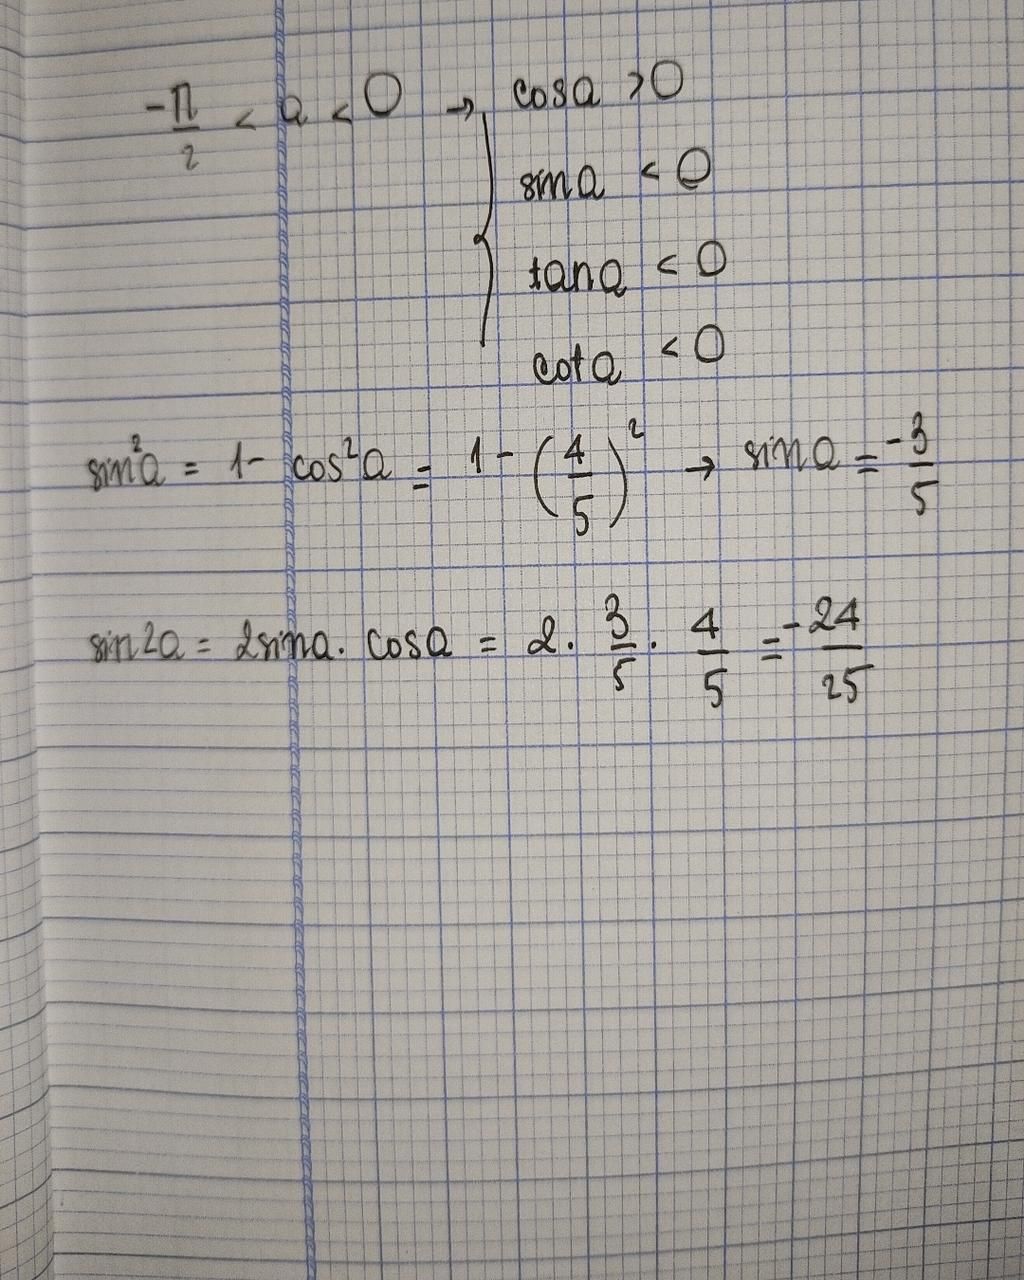 -π/2 < a < 0 → { cosa > 0
sina < 0
tana < 0
cota < 0
sin²a = 1 - cos²a = 1 - (4/5)² → sina = -3/5
sin2a = 2sina. cosa = 2. 3/5 . 4/5 = -24/25